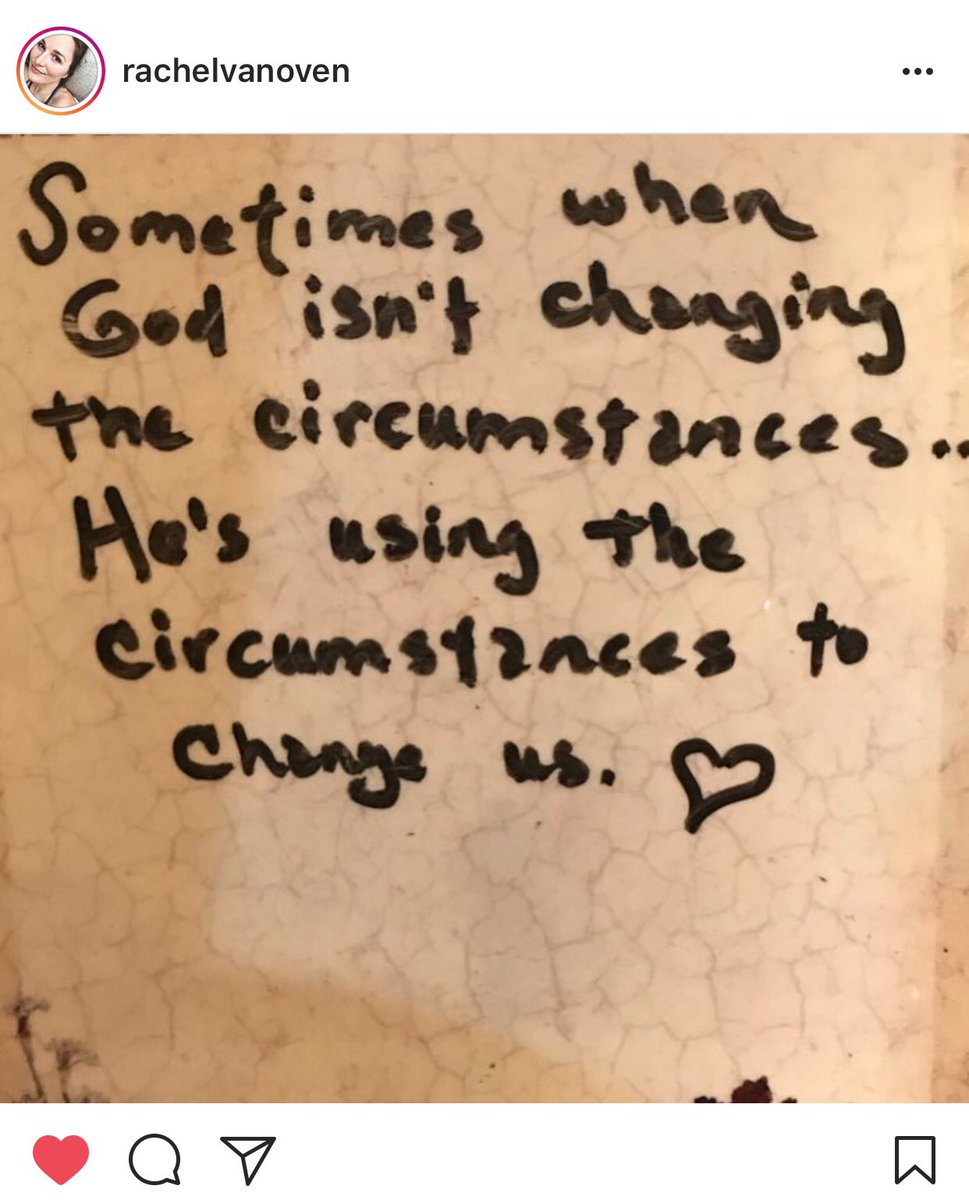 rachelvanoven
Sometimes when
God isn't changing
the circumstances..
He's using the
circumstances to
change us.